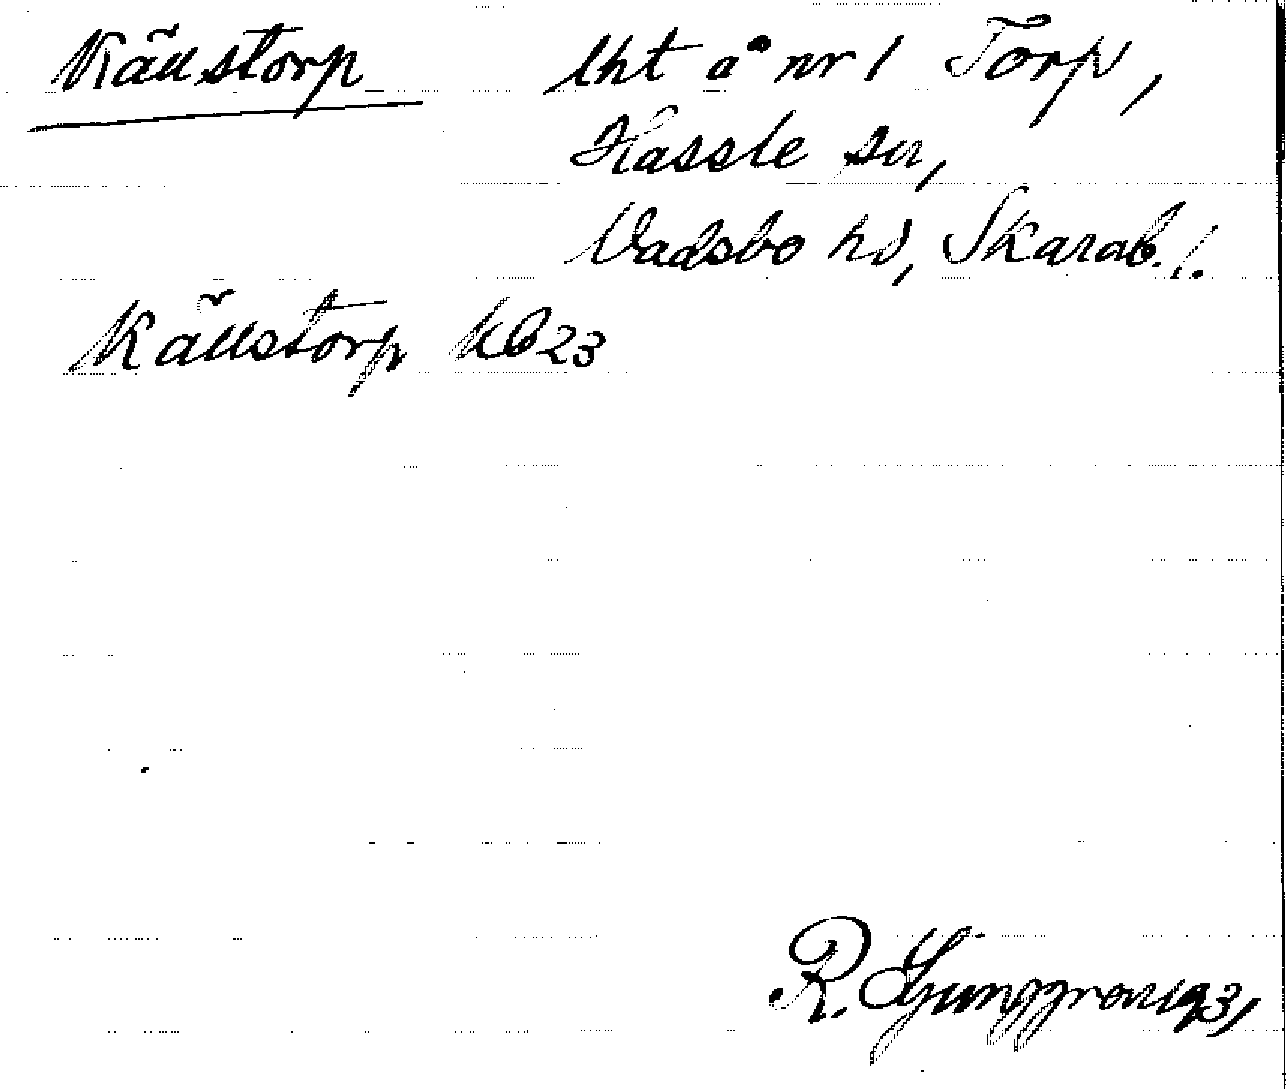 Källstorp lht å nr 1 Torp,
Hassle sn,
Vadsbo hd, Skarab. l.
Källstorp kb 23
R. Ljunggren 1931